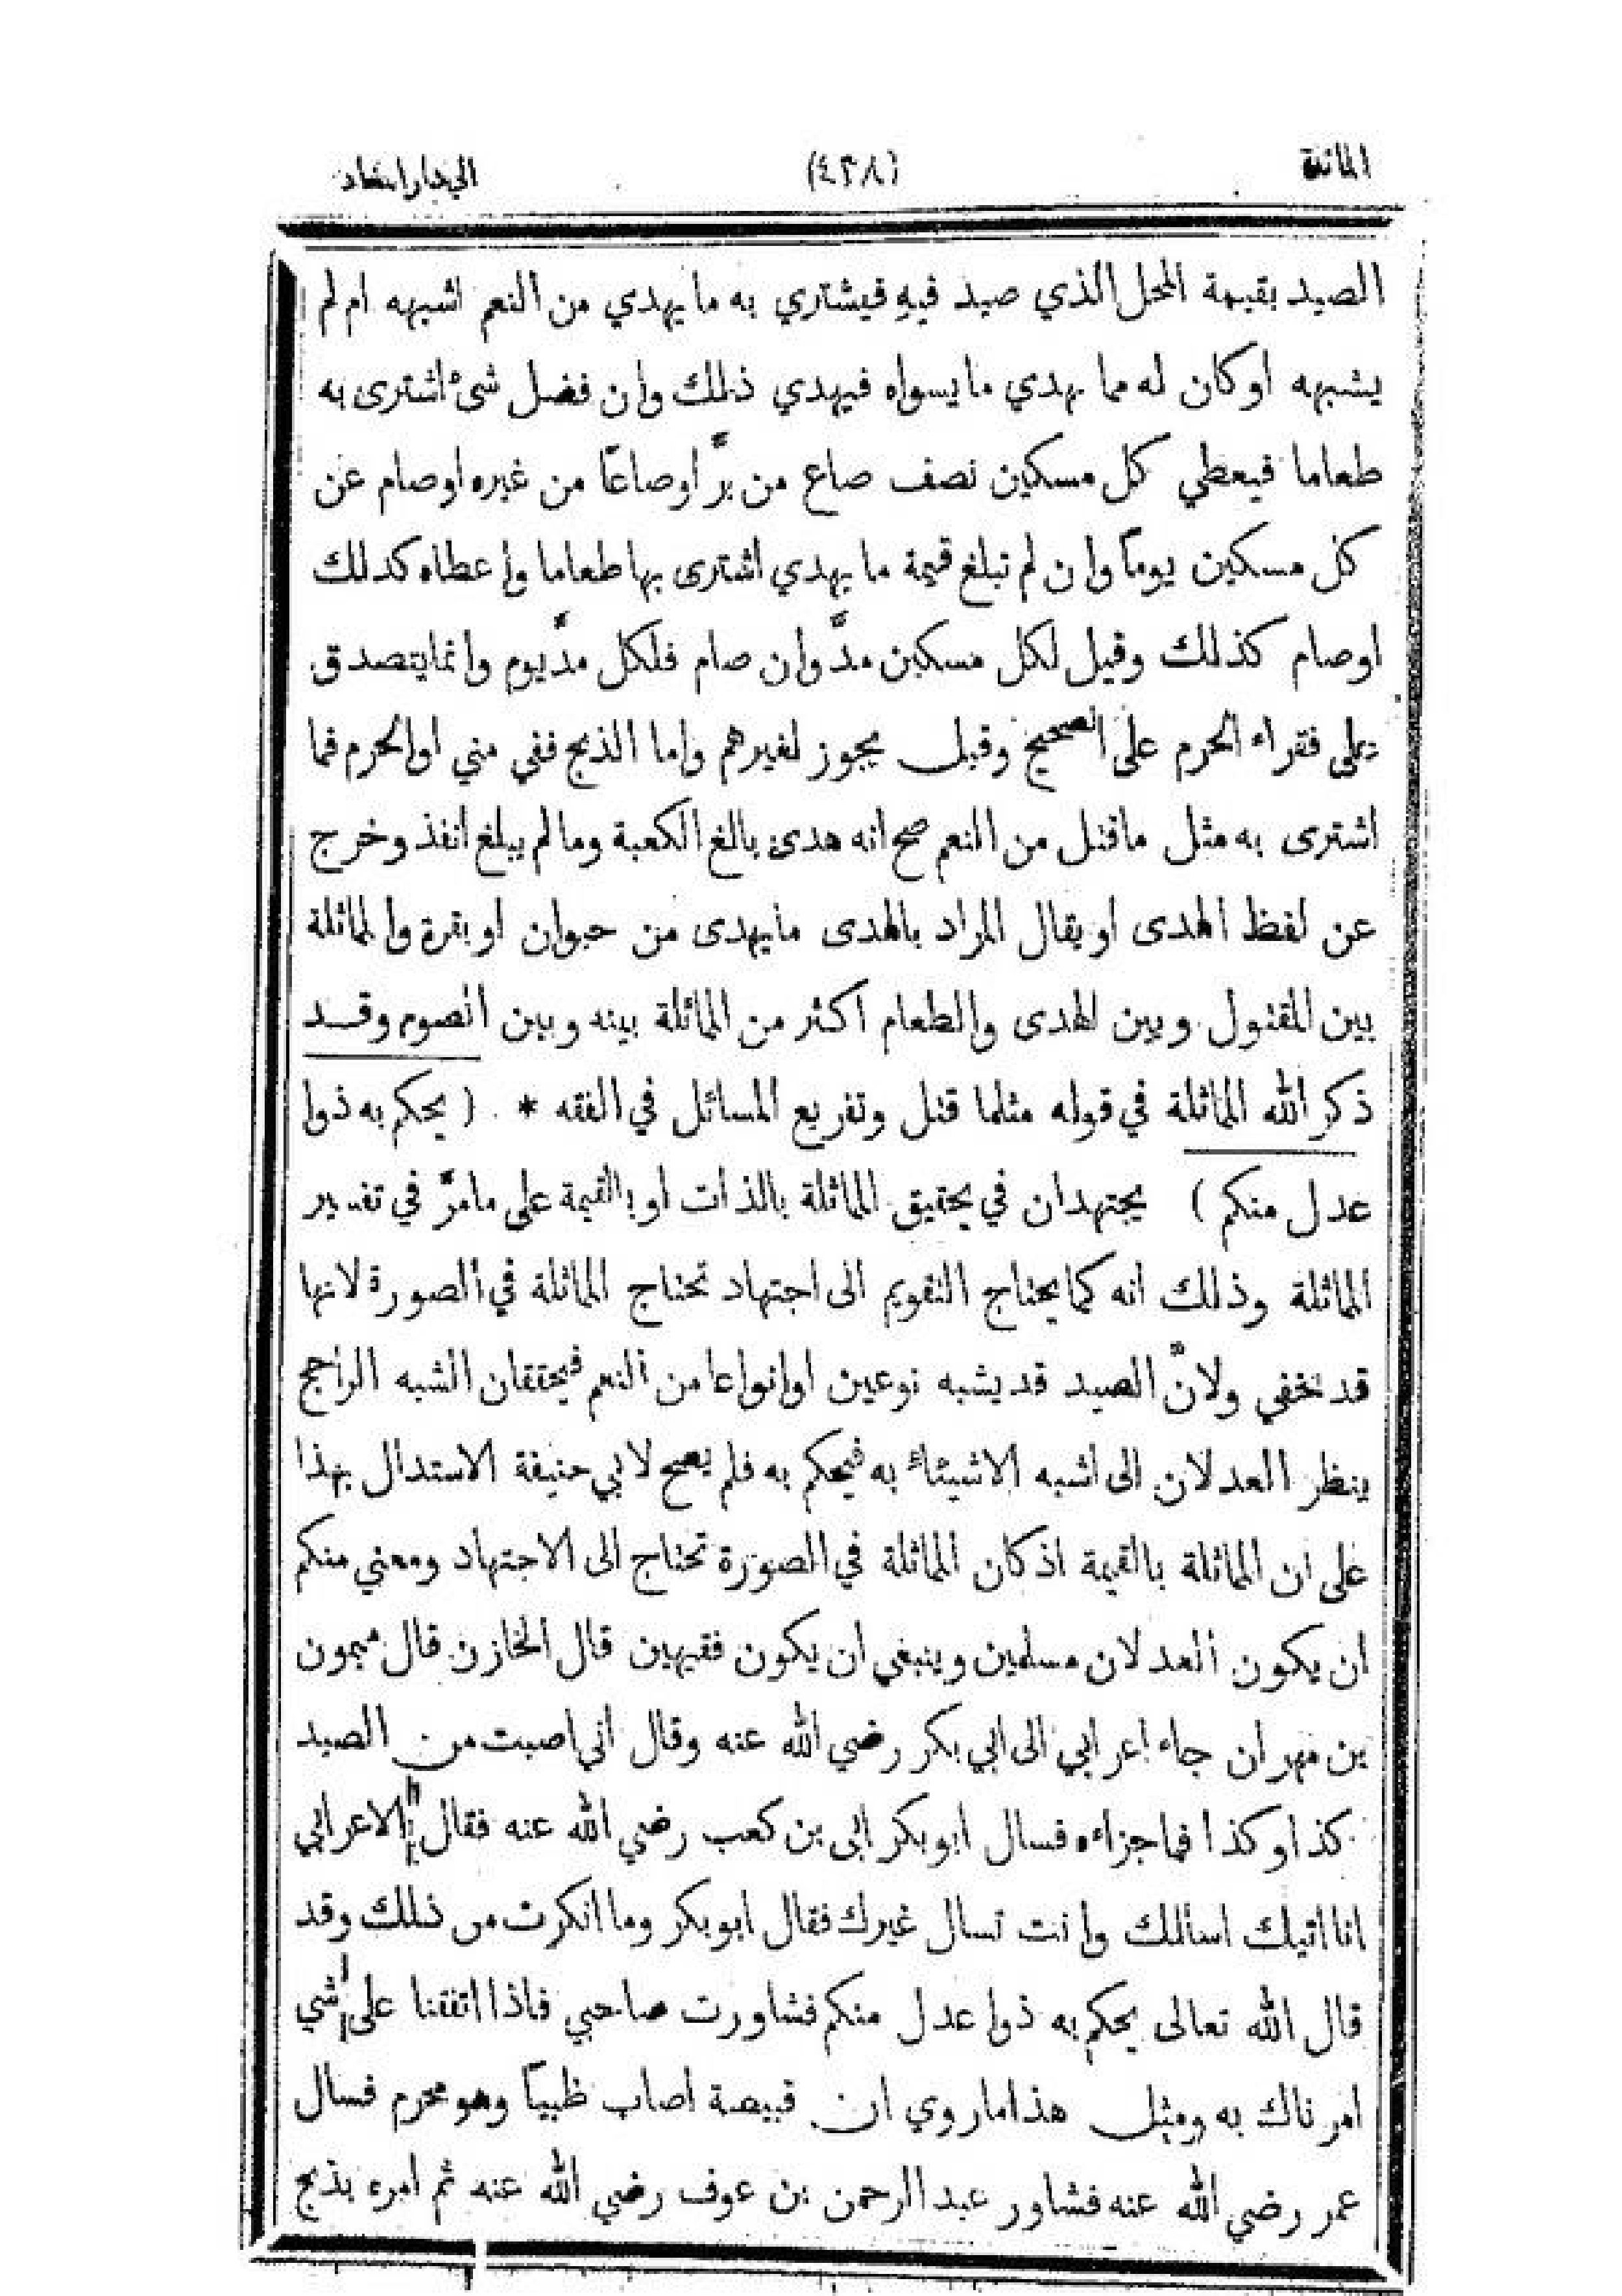 المائدة (٤٣٨) الى دار المعاد
الصيد بقيمة المحل الذي صيد فيه فيشتري به ما يهدي من النعم اشبهه ام لم
يشبهه او كان له مما يهدي ما يسواه فيهدي ذلك وان فضل شئ اشترى به
طعاما فيعطي كل مسكين نصف صاع من برّ او صاعًا من غيره او صام عن
كل مسكين يومًا وان لم تبلغ قيمة ما يهدي اشترى بها طعاما واعطاه كذلك
او صام كذلك وقيل لكل مسكين مدّ وان صام فلكل مدّ يوم وانما يتصدق
على فقراء الحرم على الصحيح وقيل يجوز لغيرهم واما الذبح ففي مني او الحرم فما
اشترى به مثل ما قتل من النعم صح انه هدى بالغ الكعبة وما لم يبلغ انفذ وخرج
عن لفظ الهدى او يقال المراد بالهدى ما يهدى من حيوان او بقرة والمماثلة
بين المقتول وبين الهدى والطعام اكثر من المماثلة بينه وبين الصوم وقد
ذكر الله المماثلة في قوله مثلما قتل وتفريع المسائل في الفقه * ( يحكم به ذوا
عدل منكم ) يجتهدان في تحقيق المماثلة بالذات او بالقيمة على ما مرّ في تفسير
المماثلة وذلك انه كما يحتاج التقويم الى اجتهاد تحتاج المماثلة في الصورة لانها
قد تخفي ولانّ الصيد قد يشبه نوعين او انواعا من النعم فيحققان الشبه الراجح
ينظر العدلان الى اشبه الاشيئاء به فيحكم به فلم يصح لابي حنيفة الاستدال بهذا
على ان المماثلة بالقيمة اذ كان المماثلة في الصورة تحتاج الى الاجتهاد ومعني منكم
ان يكون العدلان مسلمين وينبغي ان يكون فقيهين قال الخازن قال ميمون
بن مهران جاء اعرابي الى ابي بكر رضي الله عنه وقال انى اصبت من الصيد
كذا وكذا فما جزاءه فسال ابوبكر ابى بن كعب رضي الله عنه فقال الاعرابي
انا اتيك اسألك وانت تسال غيرك فقال ابوبكر وما انكرت من ذلك وقد
قال الله تعالى يحكم به ذوا عدل منكم فشاورت صاحبي فاذا اتفقنا على شي
امرناك به ومثل هذا ما روي ان قبيصة اصاب ظبيًا وهو محرم فسال
عمر رضي الله عنه فشاور عبد الرحمن بن عوف رضي الله عنه ثم امره بذبح